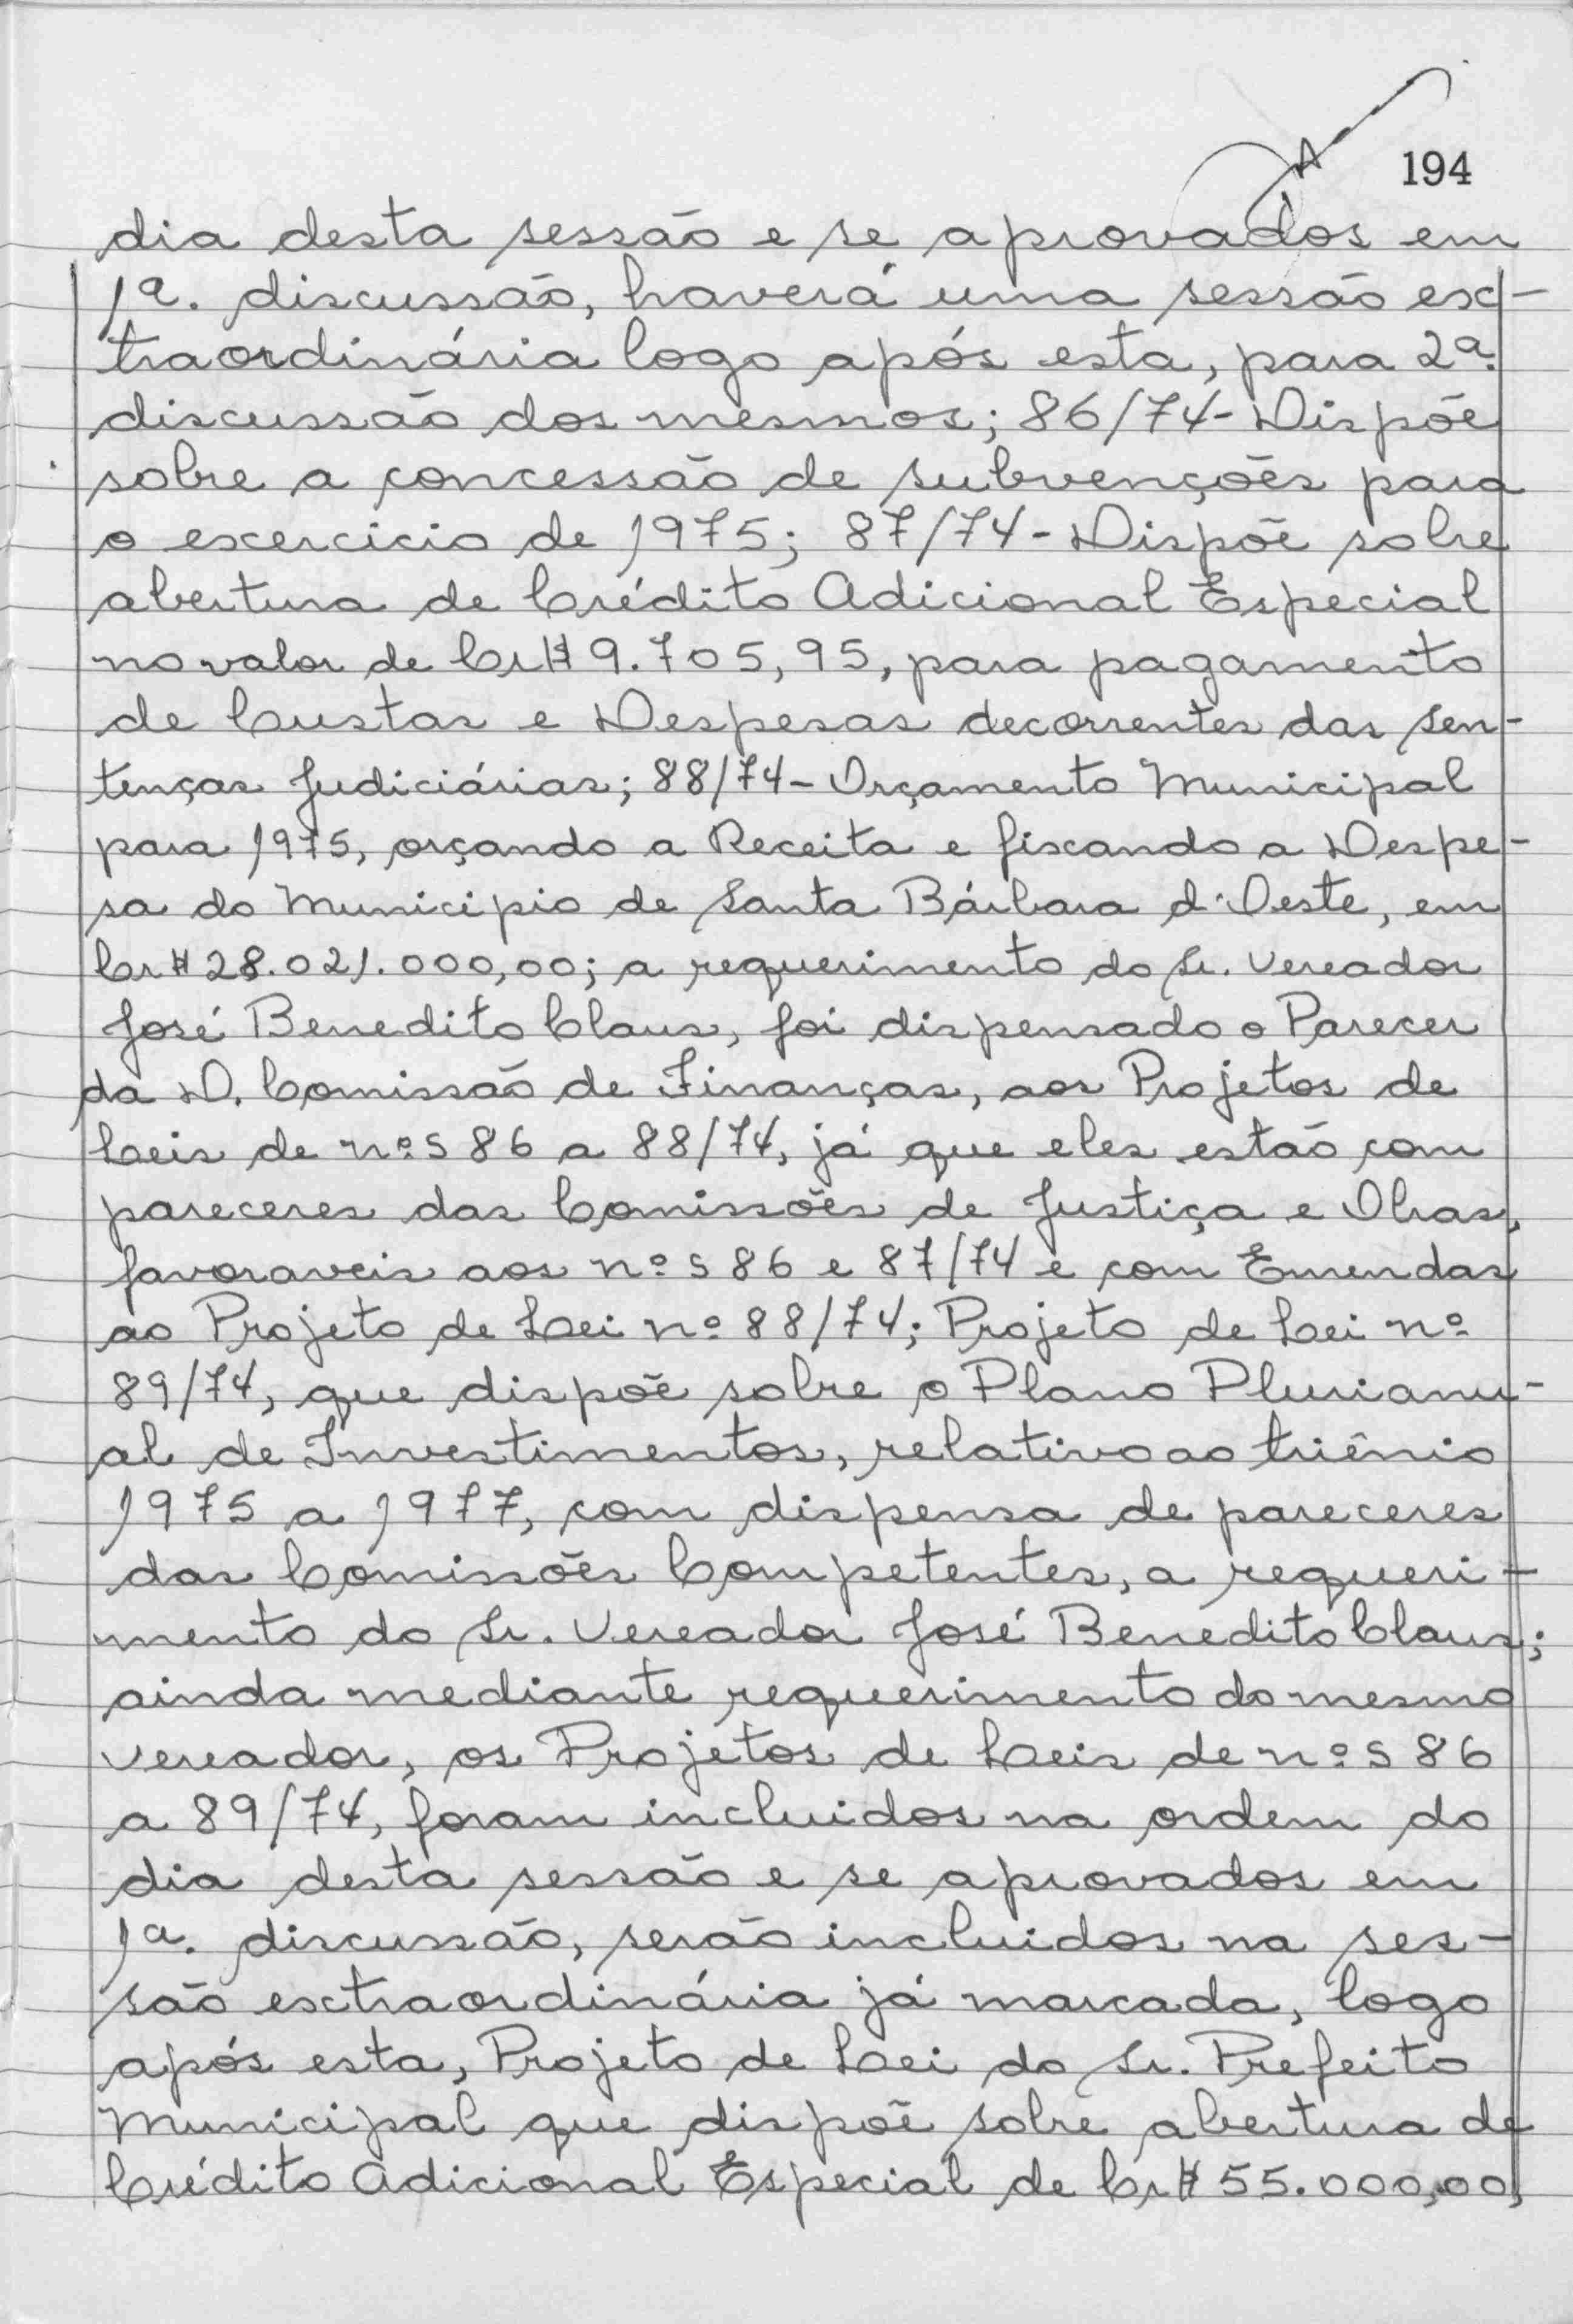 194
dia desta sessão e se aprovados em
1a. discussão, haverá uma sessão ex-
traordinária logo após esta, para 2a.
discussão dos mesmos; 86/74- Dispõe
sobre a concessão de subvenções para
o exercicio de 1975; 87/74- Dispõe sobre
abertura de Crédito Adicional Especial
no valor de Cr$ 9.705,95, para pagamento
de Custas e Despesas decorrentes das Sen-
tenças Judiciárias; 88/74- Orçamento Municipal
para 1975, orçando a Receita e fixando a Despe-
sa do Municipio de Santa Bárbara d'Oeste, em
Cr$ 28.021.000,00; a requerimento do Sr. Vereador
José Benedito Claus, foi dispensado o Parecer
da D. Comissão de Finanças, aos Projetos de
Leis de nºs 86 a 88/74, já que eles estão com
pareceres das Comissões de Justiça e Obras,
favoraveis aos nºs 86 e 87/74 e com Emendas
ao Projeto de Lei nº 88/74; Projeto de Lei nº
89/74, que dispõe sobre o Plano Plurianu-
al de Investimentos, relativo ao triênio
1975 a 1977, com dispensa de pareceres
das Comissões Competentes, a requeri-
mento do Sr. Vereador José Benedito Claus;
ainda mediante requerimento do mesmo
vereador, os Projetos de Leis de nºs 86
a 89/74, foram incluidos na ordem do
dia desta sessão e se aprovados em
1a. discussão, serão incluidos na ses-
são extraordinária já marcada, logo
após esta, Projeto de Lei do Sr. Prefeito
Municipal que dispõe sobre abertura de
Crédito Adicional Especial de Cr$ 55.000,00,